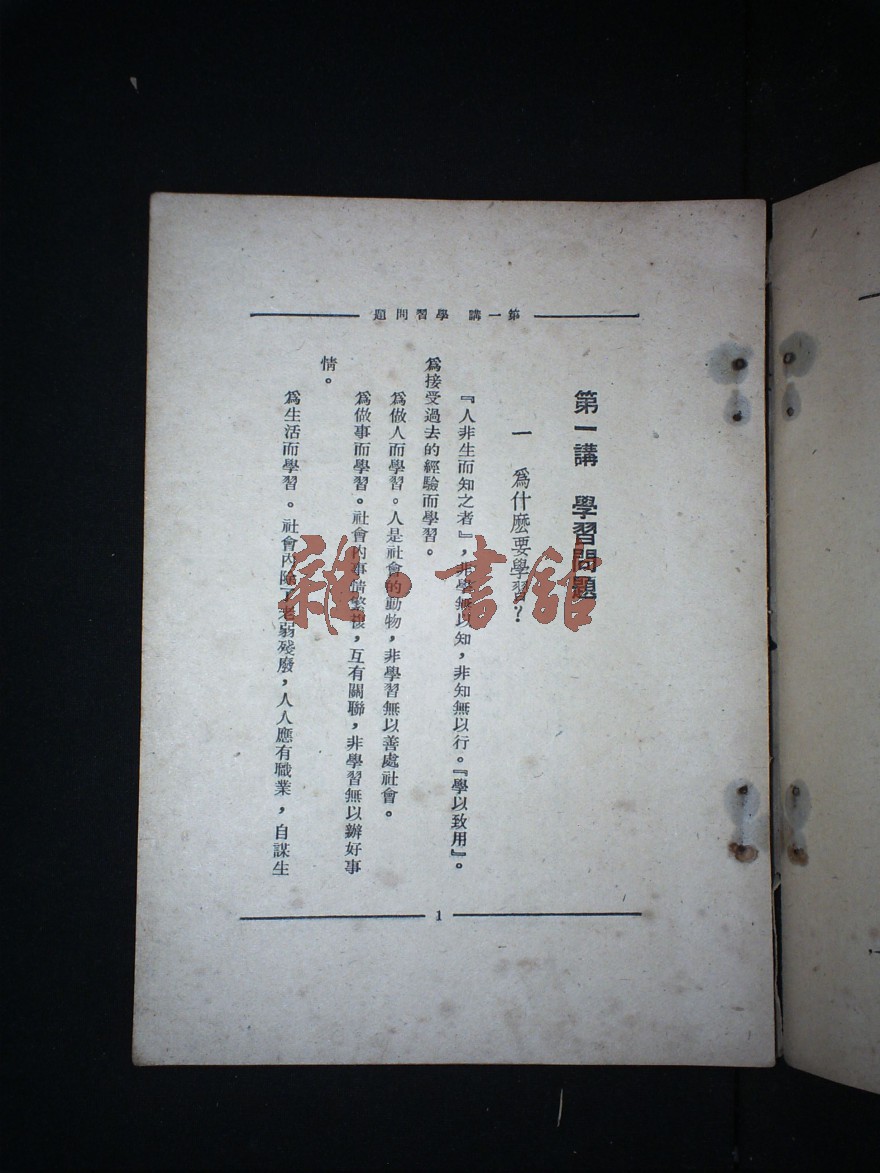 第一講 學習問題
第一講 學習問題
一 爲什麽要學習？
『人非生而知之者』，非學無以知，非知無以行。『學以致用』。
爲接受過去的經驗而學習。
爲做人而學習。人是社會的動物，非學習無以善處社會。
爲做事而學習。社會內事情繁複，互有關聯，非學習無以辦好事
情。
爲生活而學習。社會內除了老弱殘廢，人人應有職業，自謀生
1
雜·書館